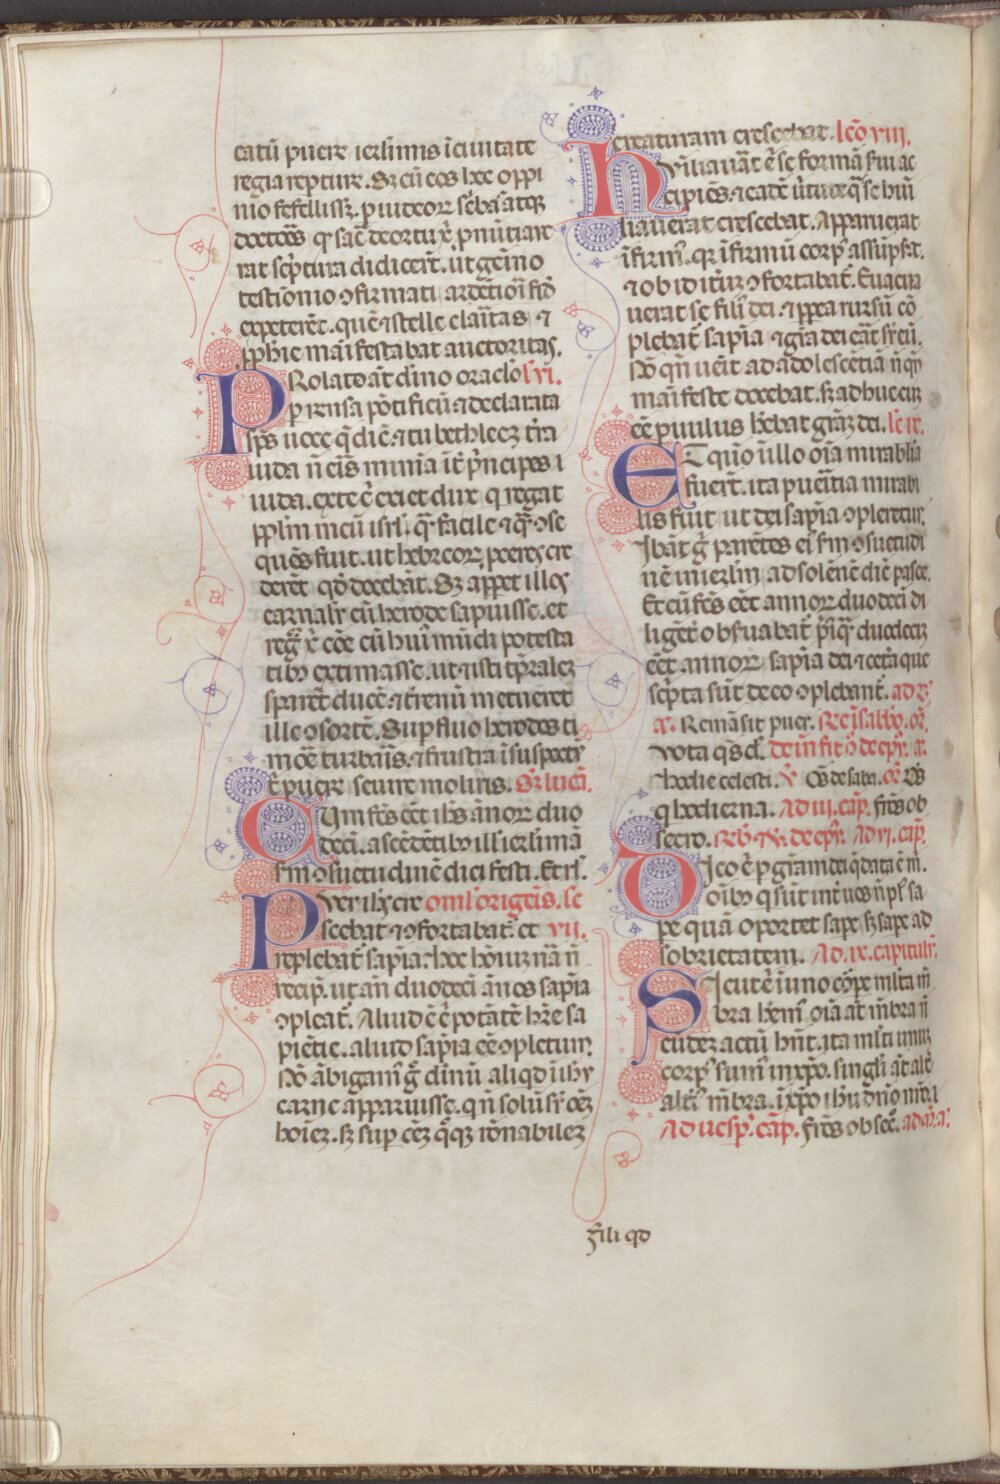 catū puere ierl'imis ī ciuitate
regia repture. Sȝ cū eos hec oppi
nio fefellissȝ. p iudeoꝝ sc̄bas atqꝫ
doctoēs qr̄ sac̄ de ortu xp̄i, p̄nūtiaue
rat scp̄tura didicerūt. ut gēino
testīonio ꝯfirmati ardētiori fꝛō
expeterēt. quē ⁊ stelle claritas ⁊
pph̄ie māifestabat auctoritas.
PRolato āt diuino oraclo l' vi.
p̄ rensa pōtificū ⁊ declarata
sps̄ uoce q̄ diē. ⁊ tu bethleeȝ tr̄ra
iuda n̄ eīs minīa īt p̄ncipes i
iuda. ex te ē exiet dux q regat
pplm meū isrl'. q̄ facile ⁊ q̄ ꝯse
quēs fuit. ut hebreoꝝ, pceres cre
derēt qd̄ docebāt. Sȝ appet illos
carnalr̄ cū herode sapuisse. et
regū xp̄i cōe cū huī mūdi potesta
tibȝ extimasse. ut ⁊ isti tp̄raleȝ
sparēt ducē ⁊ frenū metueret
ille ꝯsortē. Supfluo herodes ti
more turbaris. ⁊ frustra ī suspectū
t' puerū seuire moliris. Sꝫ lucā.
CUm fc̄s eēt ih̄s annoꝝ duo
decī. ascēdētibȝ ill' ierlimā
sm̄ ꝯsuetudinē dici festi. Et rl'.
PUer ih̄s cre omł origeis. le
scebat ⁊ ꝯfortabat̄. et vij.
replebat̄ sapīa. hec hōiuȝ nā n̄
recip̄. ut an̄ duodeci ānos sapīa
ꝯpleat̄. Aliud ē ēi potātē hr̄e sa
piētie. aliud sapīa eē ꝯpletum
Nō ābigam' g̊ diuinū aliqd ī ih̄u
carne apparuisse. qn̄ solū sr̄ oēȝ
hoīeȝ. sȝ sup oēȝ q̊qꝫ rōnabileȝ
creaturam crescebat. lc̄o viij.
hUmiliauāt ēi se formā serui ac
cipiēs. ⁊ eadē uirtute q̄ se humi
liauerat crescebat. Apparuerat
īfirm'. qr īfirmū corp' assūpsat.
⁊ ob id iteꝝ ꝯfortabat̄. Euacua
uerat se fili' dei. ⁊ pp̄ea rursū cō
plebat̄ sapīa ⁊ grā dei eāt sr̄ eū.
Nō qn̄ uēit ad adolescētiā n̄ qn̄
māifeste docebat. sȝ adhuc cuȝ
eēt puulus h̄ebat grāȝ dei. le ix.
ET quō ī illo oīa mirabilia
fuerūt. ita pueritia mirabi
lis fuit ut dei sapīa ꝯpleretur.
Ibāt g̊ parētes ei' sm̄ ꝯsuetudi
nē in ierl'm ad solēnē diē pasce.
Et cū fc̄s eēt annoꝝ duodecī di
ligēt' obseruabāt p̄us qr̄ duodeciȝ
eēt annoꝝ sapīa dei ⁊ cetera que
scp̄ta sūt de eo ꝯplebant̄. ad B.
a'. Remāsit puer. Re ī sabbo. or̄.
Uota qs d'. de inf it' ō de epy. a'.
hodie celesti. ℣ Oēs de saba. or̄ Ds
q hodierna. Ad iij. cap̄. Frēs ob
secro. Rb' ⁊ ℣. de epy. Ad vj. cap̄.
DIco ēi p grām dei q̄ data ē m̄.
oībȝ q sūt int' uos n̄ pl' sa
pe quā oportet sape. sȝ sape ad
sobrietatem. Ad ix. capitulū.
SIcut ēi ī uno corpe ml'ta m̄
bra hem'. oīa āt m̄bra n̄
eūdeȝ actū hn̄t. ita ml'ti unuȝ
corp' sum' in xp̄o. singl'i āt alt'
alt'i' m̄bra. ī xp̄o ih̄u dn̄o nr̄o.
Ad uesp'. cap̄. Frēs obsec̄. ad m̄. a'.
Fili qd